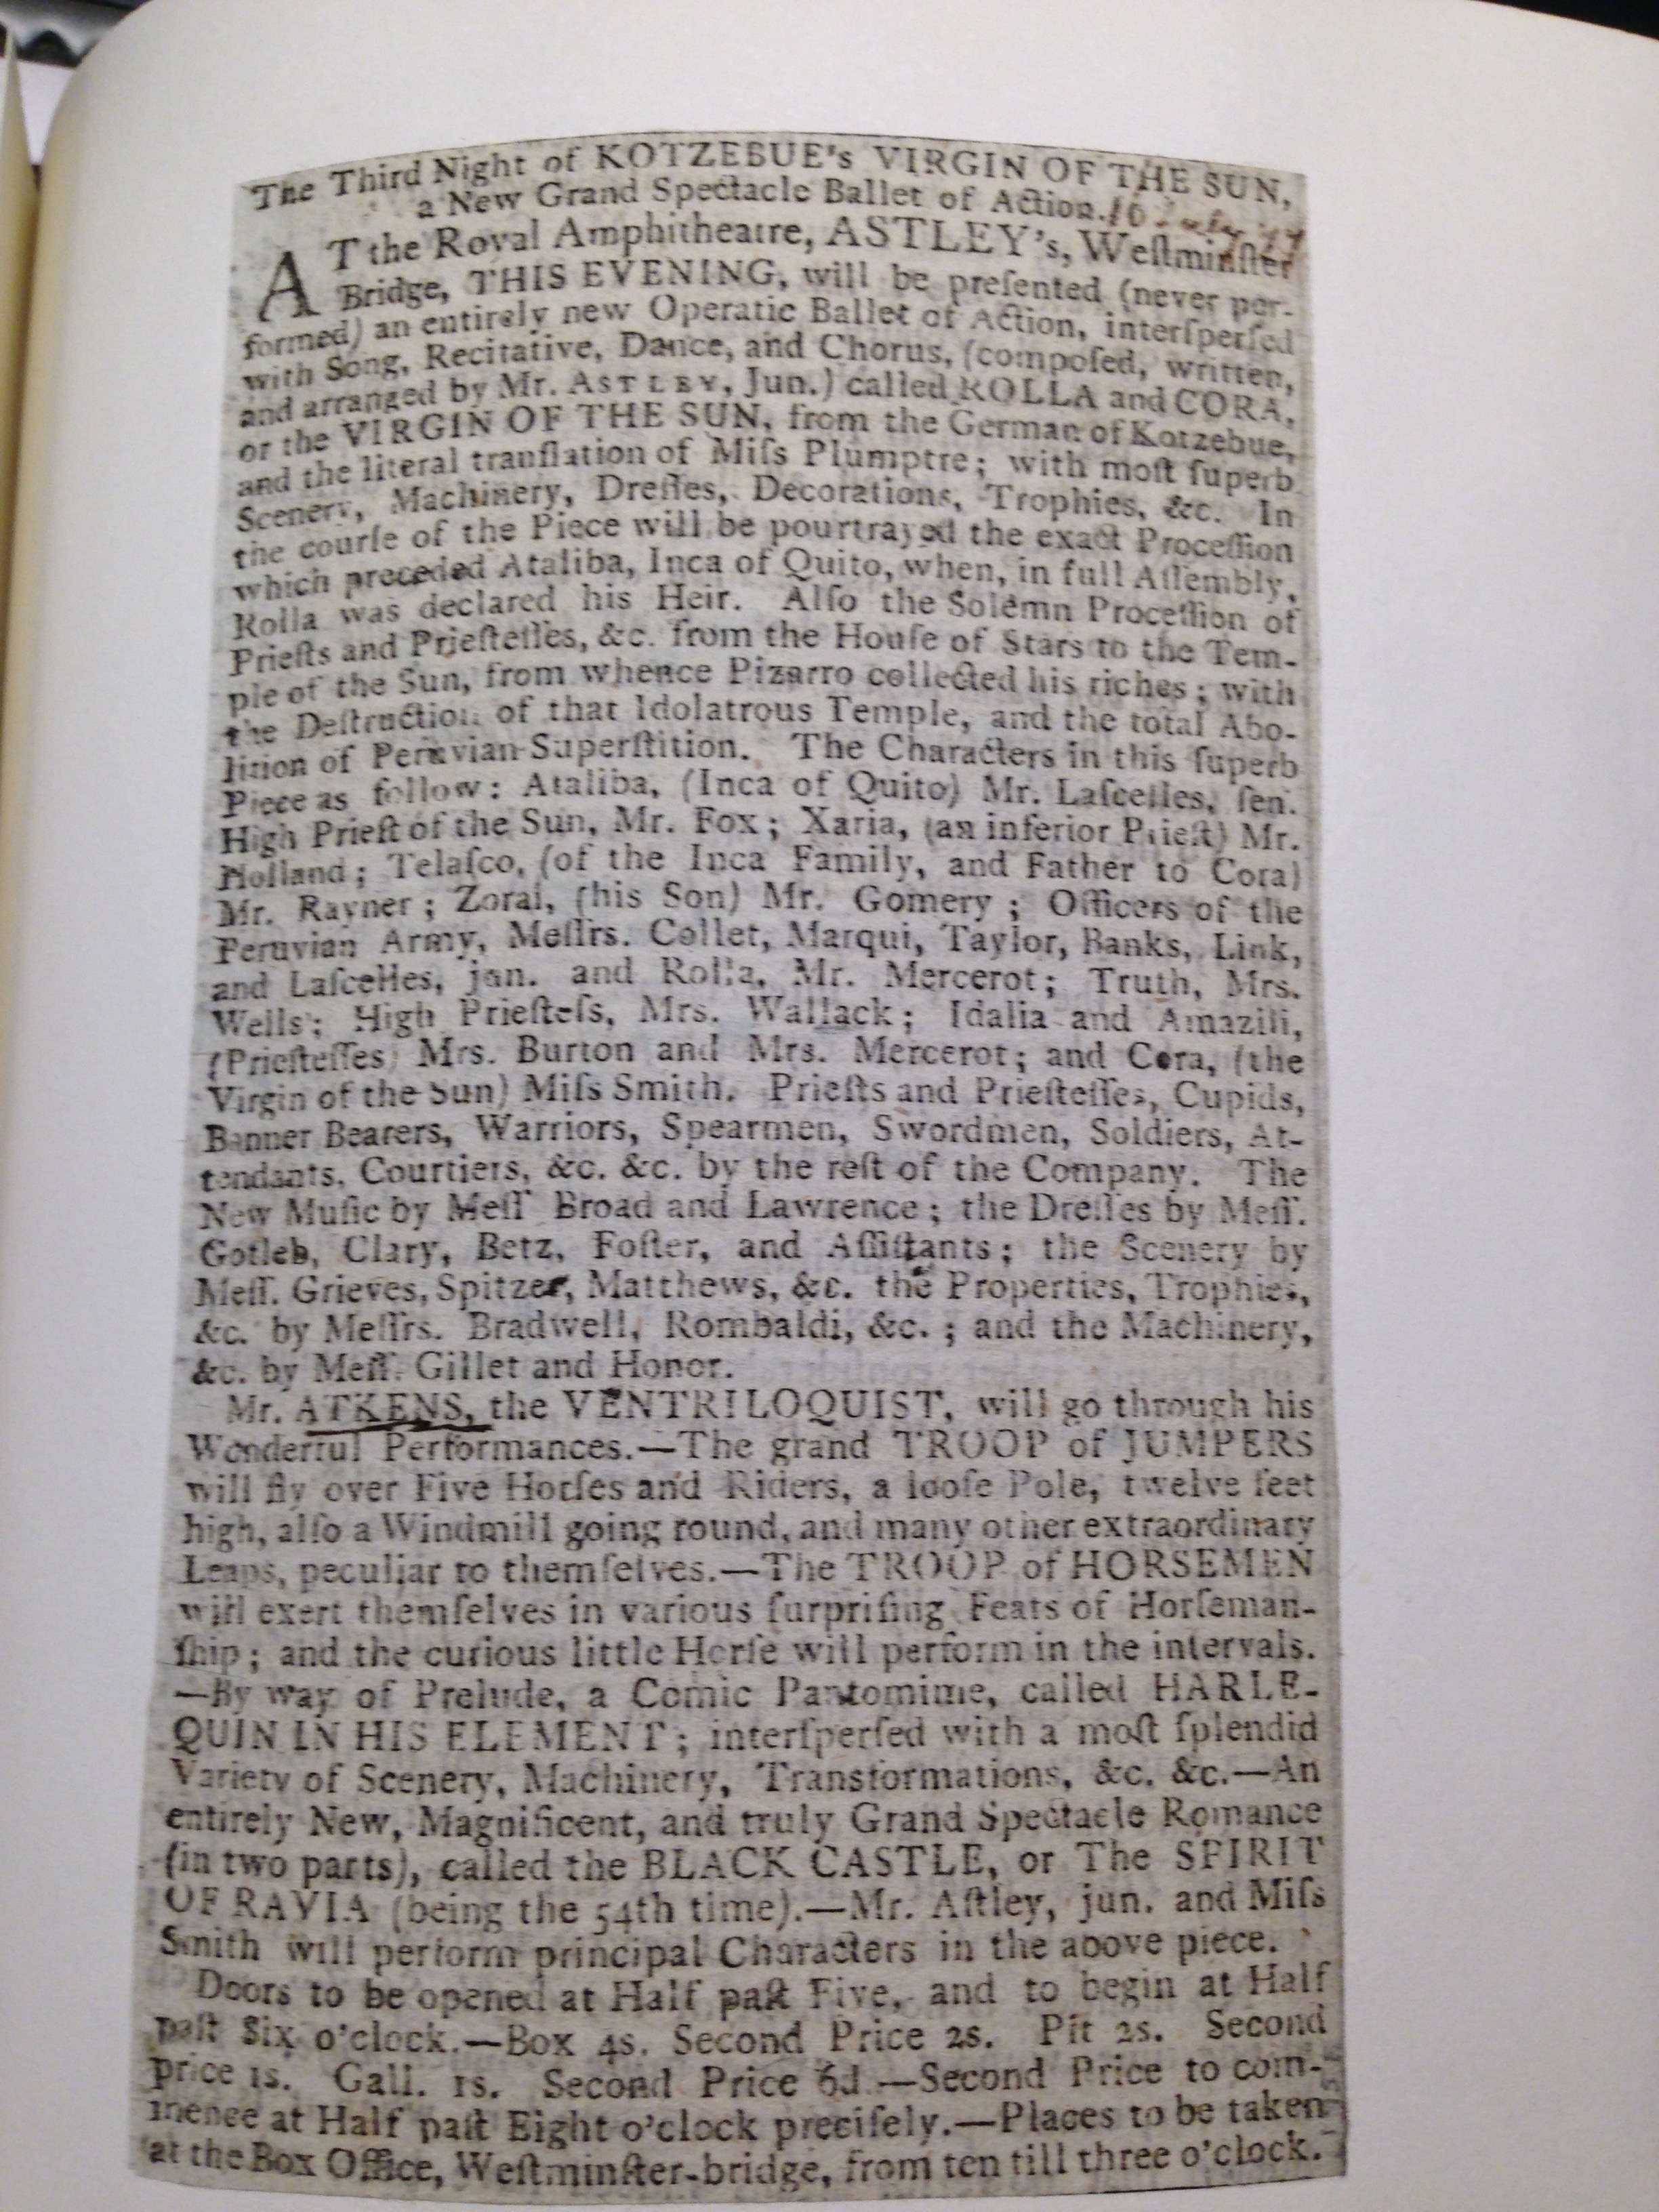 The Third Night of KOTZEBUE's VIRGIN OF THE SUN,
a New Grand Spectacle Ballet of Action. 10 July
AT the Royal Amphitheatre, ASTLEY's, Weſtminſter
Bridge, THIS EVENING, will be preſented (never per-
formed) an entirely new Operatic Ballet of Action, interſperſed
with Song, Recitative, Dance, and Chorus, (compoſed, written,
and arranged by Mr. ASTLEY, Jun.) called ROLLA and CORA,
or the VIRGIN OF THE SUN, from the German of Kotzebue,
and the literal tranſlation of Miſs Plumptre; with moſt ſuperb
Scenery, Machinery, Dreſſes, Decorations, Trophies, &c. In
the courſe of the Piece will be pourtrayed the exact Proceſſion
which preceded Ataliba, Inca of Quito, when, in full Aſſembly,
Rolla was declared his Heir. Alſo the Solemn Proceſſion of
Prieſts and Prieſteſſes, &c. from the Houſe of Stars to the Tem-
ple of the Sun, from whence Pizarro collected his riches; with
the Deſtruction of that Idolatrous Temple, and the total Abo-
lition of Peruvian Superſtition. The Characters in this ſuperb
Piece as follow: Ataliba, (Inca of Quito) Mr. Laſcelles, ſen.
High Prieſt of the Sun, Mr. Fox; Xaria, (an inferior Prieſt) Mr.
Holland; Telaſco, (of the Inca Family, and Father to Cora)
Mr. Rayner; Zorai, (his Son) Mr. Gomery; Officers of the
Peruvian Army, Meſſrs. Collet, Marqui, Taylor, Banks, Link,
and Laſcelles, jun. and Rolla, Mr. Mercerot; Truth, Mrs.
Wells; High Prieſteſs, Mrs. Wallack; Idalia and Amazili,
(Prieſteſſes) Mrs. Burton and Mrs. Mercerot; and Cora, (the
Virgin of the Sun) Miſs Smith. Prieſts and Prieſteſſes, Cupids,
Banner Bearers, Warriors, Spearmen, Swordmen, Soldiers, At-
tendants, Courtiers, &c. &c. by the reſt of the Company. The
New Muſic by Meſſ Broad and Lawrence; the Dreſſes by Meſſ.
Gotleb, Clary, Betz, Foſter, and Aſſiſtants; the Scenery by
Meſſ. Grieves, Spitzer, Matthews, &c. the Properties, Trophies,
&c. by Meſſrs. Bradwell, Rombaldi, &c.; and the Machinery,
&c. by Meſſ. Gillet and Honor.
Mr. ATKENS, the VENTRILOQUIST, will go through his
Wonderful Performances.—The grand TROOP of JUMPERS
will fly over Five Horſes and Riders, a looſe Pole, twelve feet
high, alſo a Windmill going round, and many other extraordinary
Leaps, peculiar to themſelves.—The TROOP of HORSEMEN
will exert themſelves in various ſurpriſing Feats of Horſeman-
ſhip; and the curious little Horſe will perform in the intervals.
—By way of Prelude, a Comic Pantomime, called HARLE-
QUIN IN HIS ELEMENT; interſperſed with a moſt ſplendid
Variety of Scenery, Machinery, Transformations, &c. &c.—An
entirely New, Magnificent, and truly Grand Spectacle Romance
(in two parts), called the BLACK CASTLE, or The SPIRIT
OF RAVIA (being the 54th time).—Mr. Aſtley, jun. and Miſs
Smith will perform principal Characters in the above piece.
Doors to be opened at Half paſt Five, and to begin at Half
paſt Six o'clock.—Box 4s. Second Price 2s. Pit 2s. Second
price 1s. Gall. 1s. Second Price 6d.—Second Price to com-
mence at Half paſt Eight o'clock preciſely.—Places to be taken
at the Box Office, Weſtminſter-bridge, from ten till three o'clock.